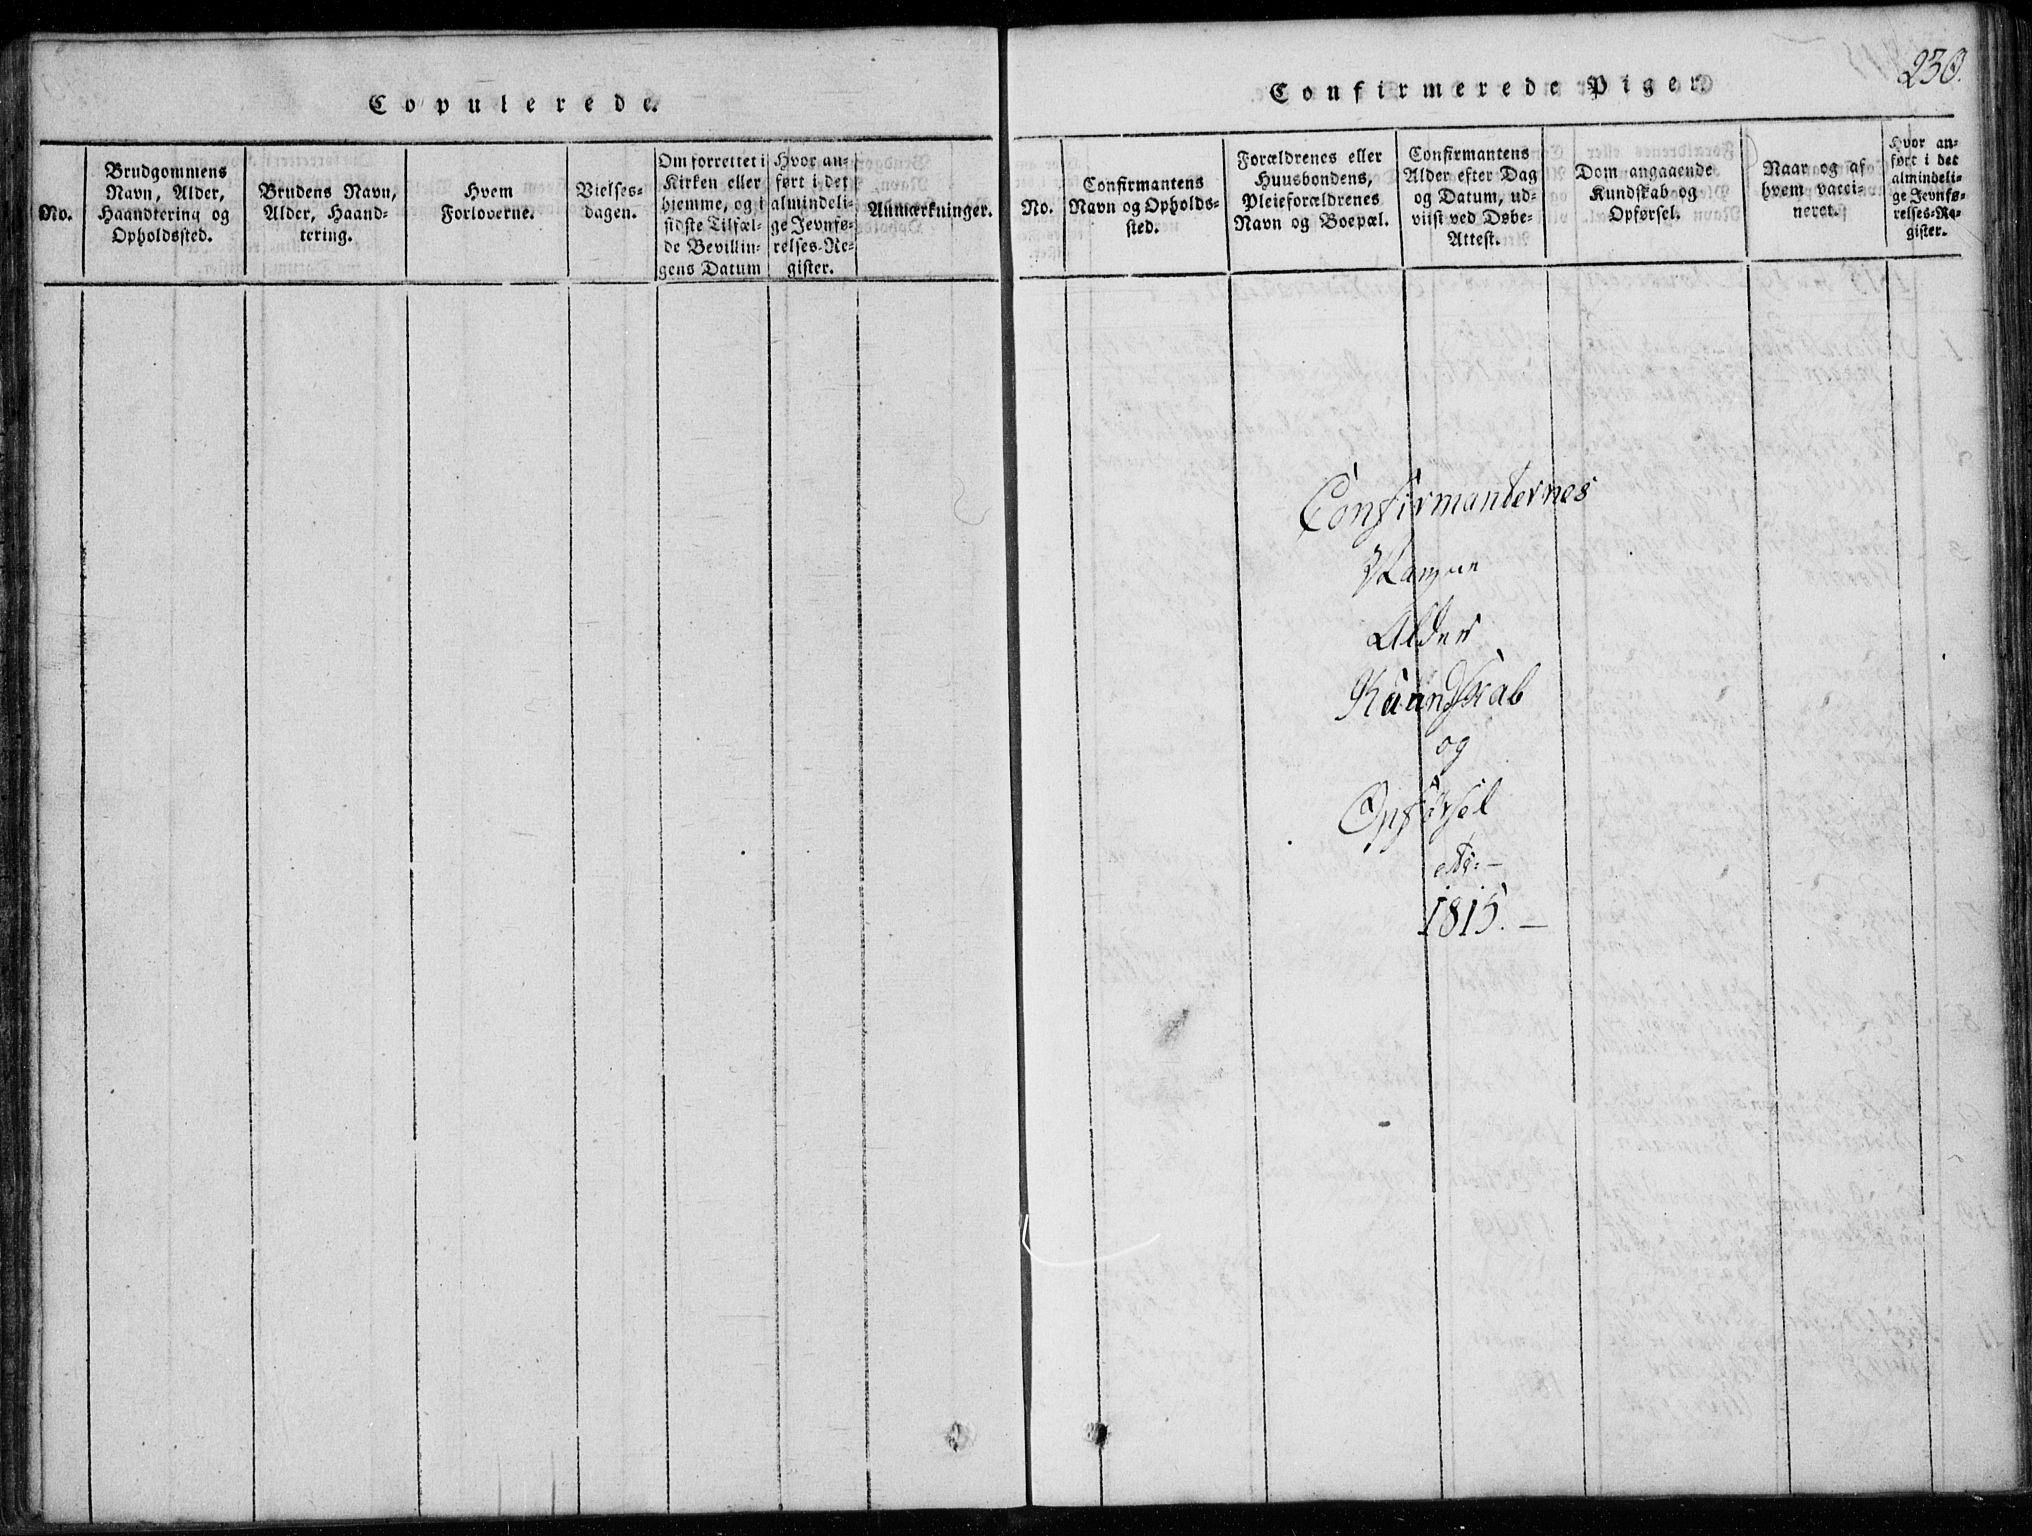 Copulerede.
No.
Brudgommens
Navn, Alder,
Haandtering og
Opholdssted.
Brudens Navn,
Alder, Haand-
tering.
Hvem
Forloverne.
Vielses-
dagen.
Om forrettet i
Kirken eller
hjemme, og i
sidste Tilfæl-
de Bevillin-
gens Datum
Hvor an-
ført i det
almindeli-
ge Jevnfø-
relses-Re-
gister.
Anmærkninger.
230.
Confirmerede Piger.
No.
Confirmantens
Navn og Opholds-
sted.
Forældrenes eller
Huusbondens,
Pleieforældrenes
Navn og Boepæl.
Confirmantens
Alder efter Dag
og Datum, ud-
viist ved Døbe-
Attest.
Dom angaaende
Kundskab og
Opførsel.
Naar og af
hvem vacci-
neret.
Hvor an-
ført i det
almindeli-
ge Jevnfø-
relses-Re-
gister.
Confirmanternes
Alder
Kundskab
og
Opførsel
1815. —